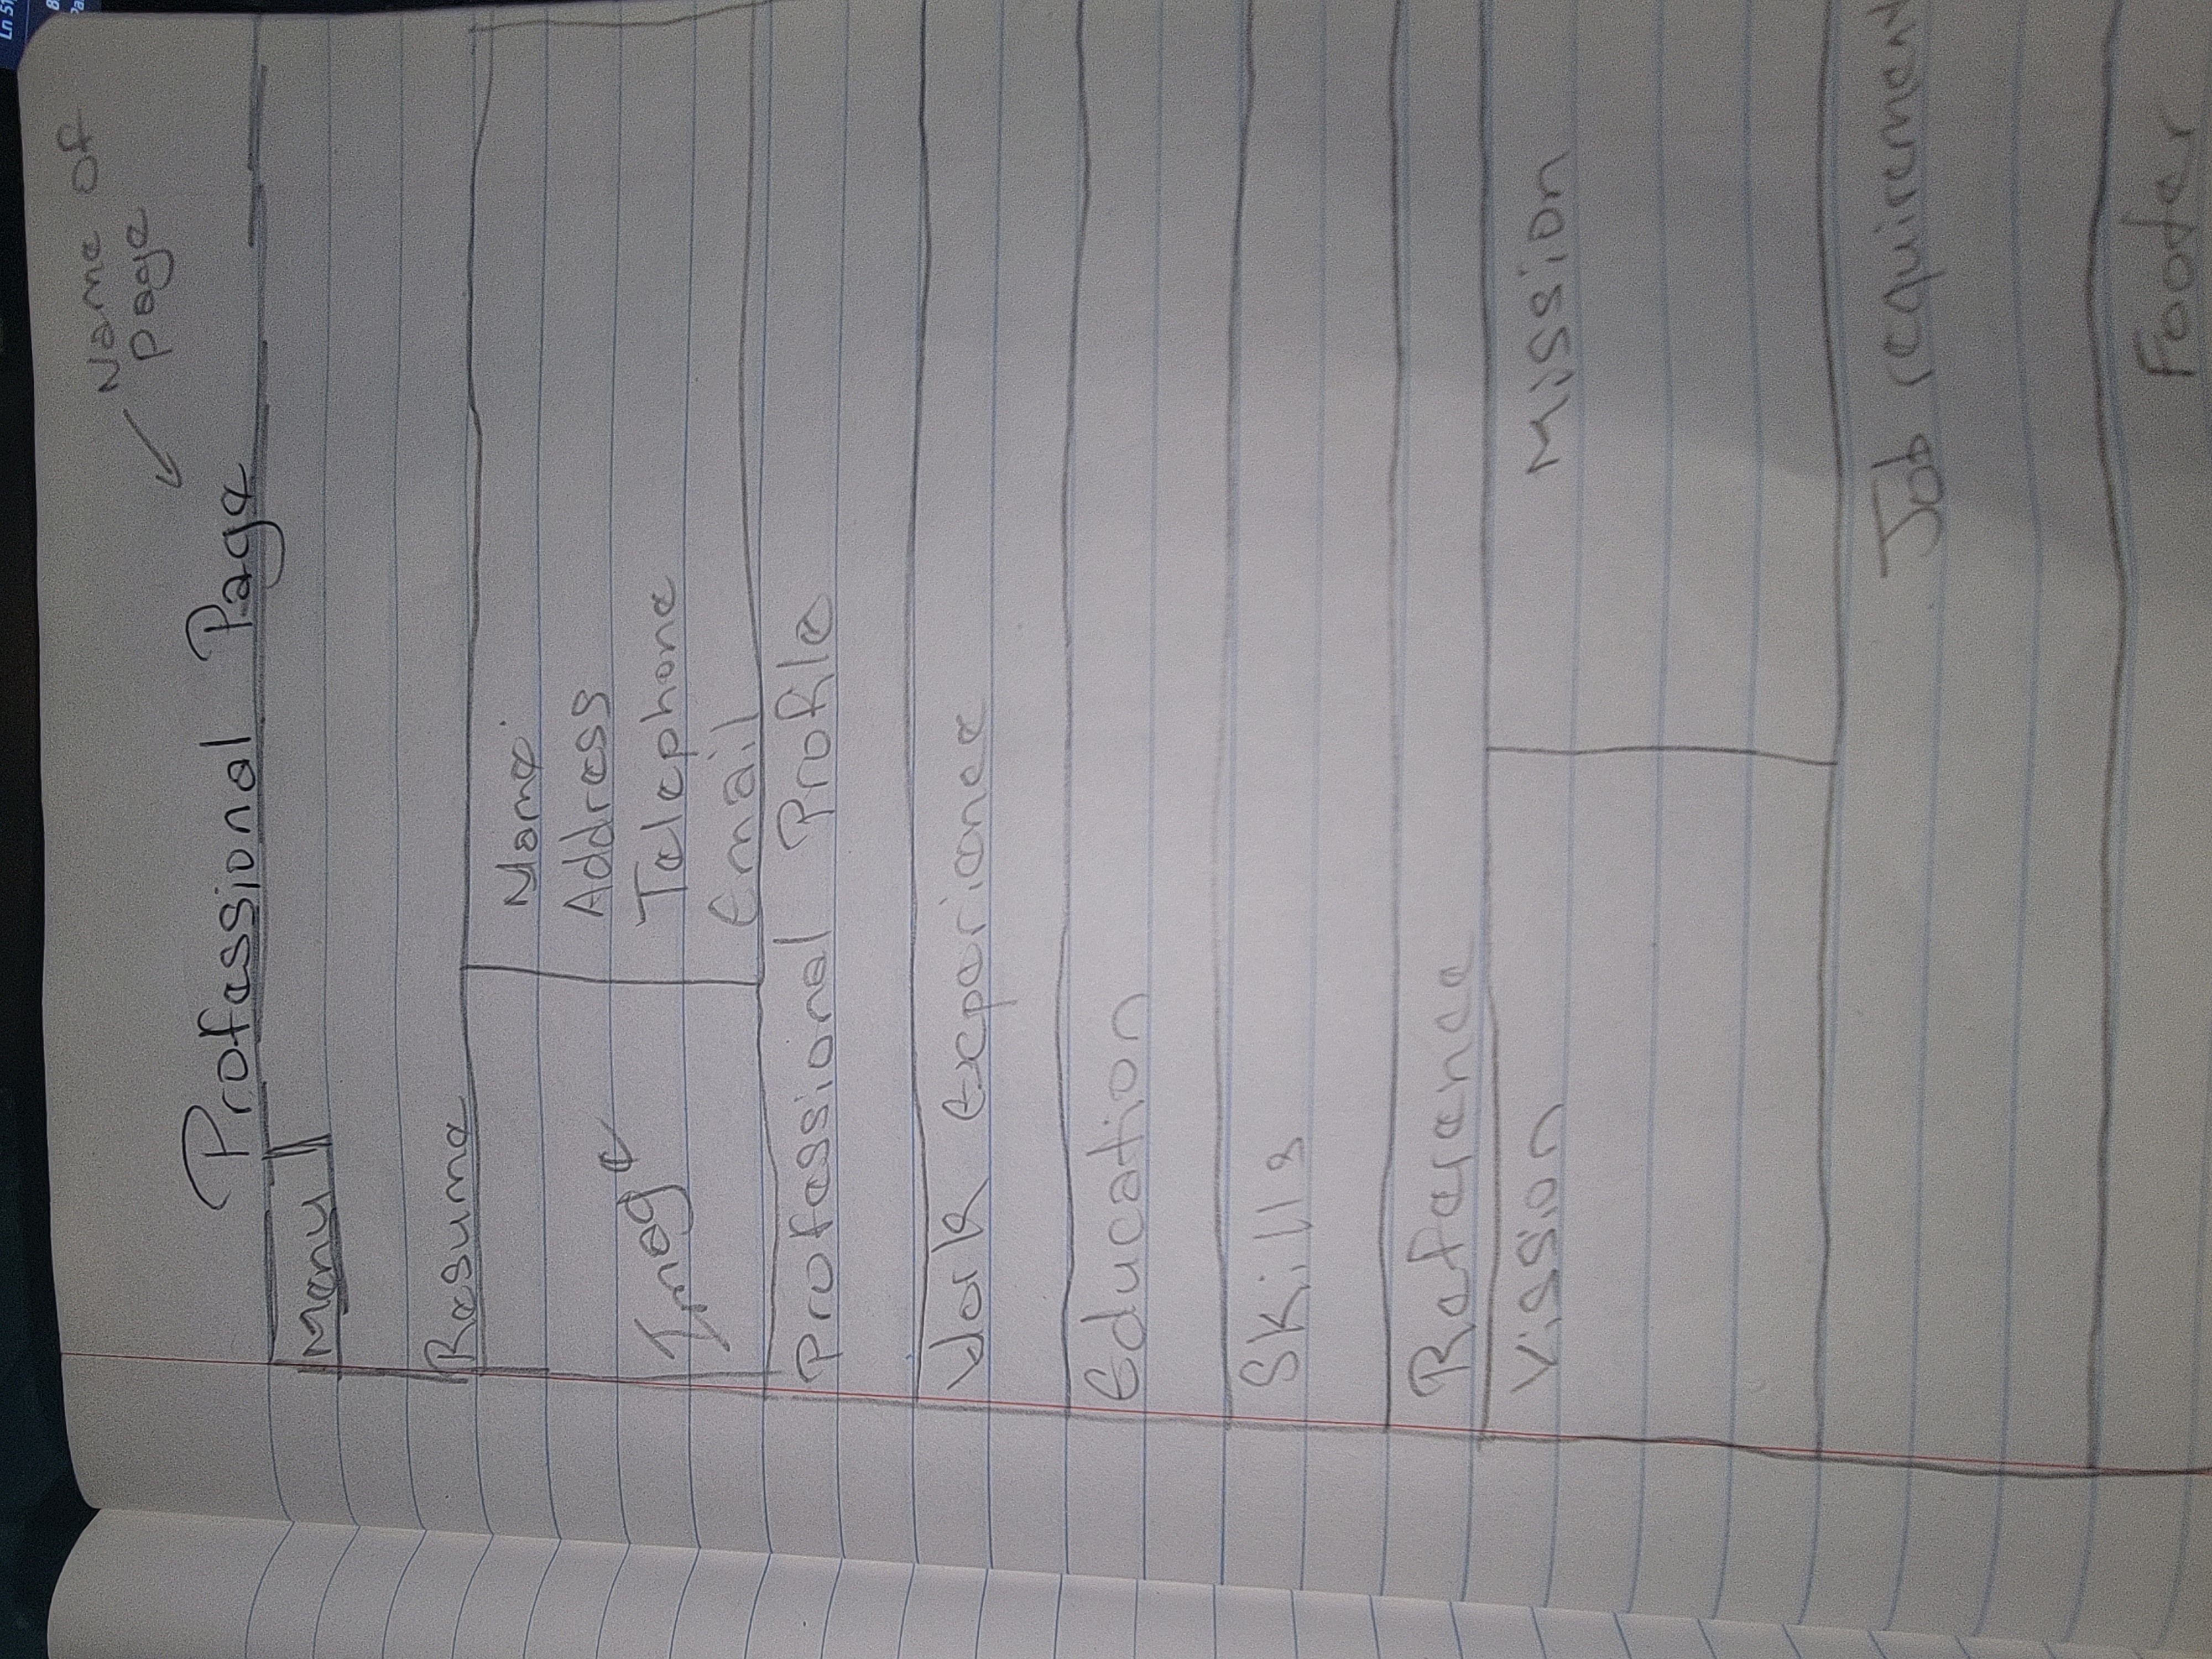 Ln 51
Name of
page
Professional Page
Menu
Resume
Image
Name
Address
Telephone
Email
Professional Profile
Work Experience
Education
Skills
Reference
Vission
Mission
Job requirement
Footer